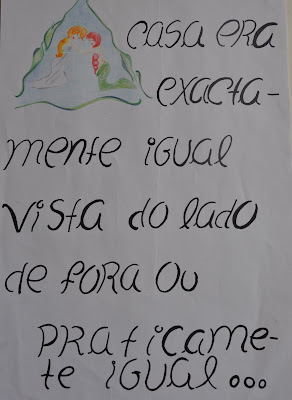 A casa era
exacta-
mente igual
vista do lado
de fora ou
praticame-
te igual...